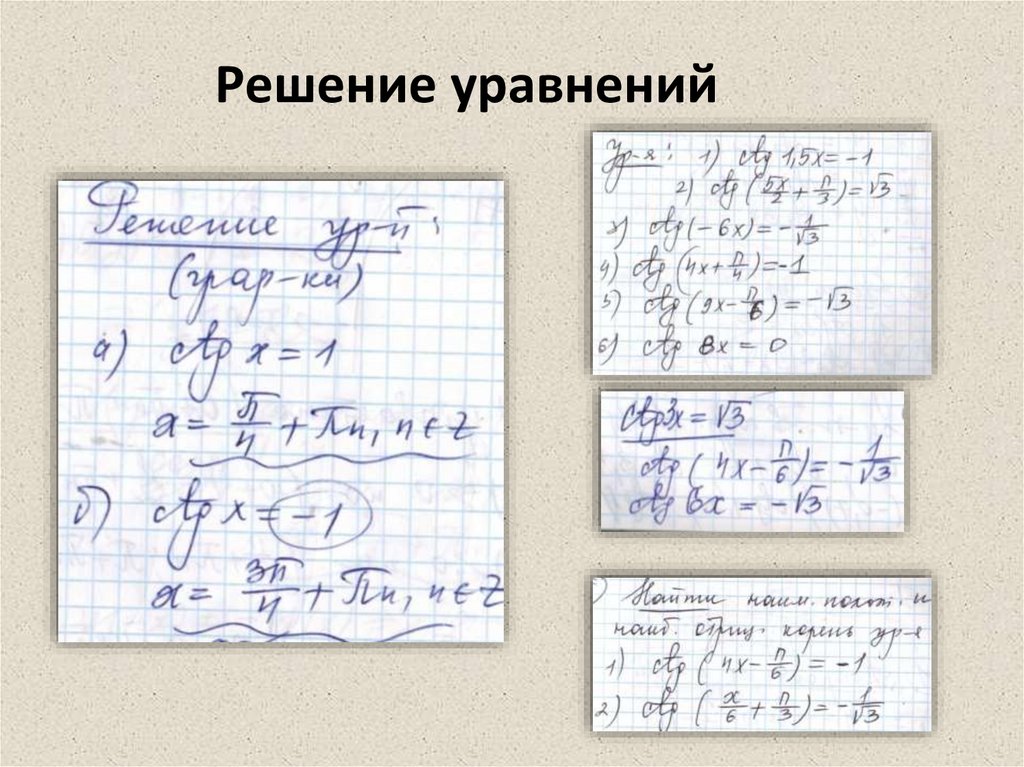 Решение уравнений
Решение ур-й:
(граф-ки)
а) ctg x = 1
x = π/4 + πn, n ∈ Z
б) ctg x = -1
x = 3π/4 + πn, n ∈ Z
Ур-я: 1) ctg 1,5x = -1
2) ctg (5x/2 + π/3) = √3
3) ctg (-6x) = -1/√3
4) ctg (4x + π/4) = -1
5) ctg (9x - π/6) = -√3
6) ctg 8x = 0
ctg 3x = √3
ctg (4x - π/6) = -1/√3
ctg 5x = -√3
) Найти наим. полож. и
наиб. отриц. корень ур-я
1) ctg (4x - π/6) = -1
2) ctg (x/6 + π/3) = -1/√3